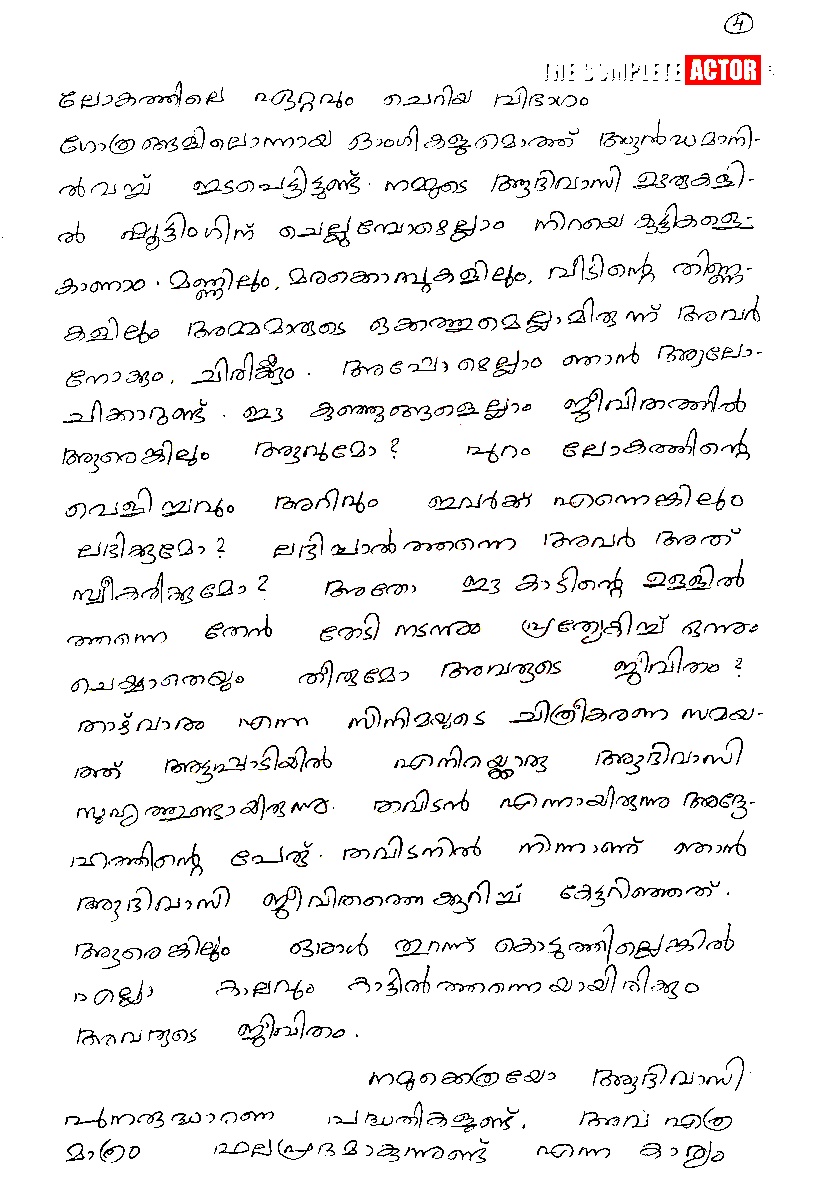 4
THE COMPLETE ACTOR
ലോകത്തിലെ ഏറ്റവും ചെറിയ വിഭാഗം
ഗോത്രങ്ങളിലൊന്നായ ഓംഗികളുമൊത്ത് ആൻഡമാനി-
ൽവച്ച് ഇടപെട്ടിട്ടുണ്ട്. നമ്മുടെ ആദിവാസി ഊരുകളി-
ൽ ഷൂട്ടിംഗിന് ചെല്ലുമ്പോളെല്ലാം നിറയെ കുട്ടികളെ
കാണാം. മണ്ണിലും, മരക്കൊമ്പുകളിലും, വീടിന്റെ തിണ്ണ-
കളിലും അമ്മമാരുടെ ഒക്കത്തുമെല്ലാമിരുന്ന് അവർ
നോക്കും, ചിരിക്കും. അപ്പോളെല്ലാം ഞാൻ ആലോ-
ചിക്കാറുണ്ട്. ഈ കുഞ്ഞുങ്ങളെല്ലാം ജീവിതത്തിൽ
ആരെങ്കിലും ആവുമോ? പുറം ലോകത്തിന്റെ
വെളിച്ചവും അറിവും ഇവർക്ക് എന്നെങ്കിലും
ലഭിക്കുമോ? ലഭിച്ചാൽത്തന്നെ അവർ അത്
സ്വീകരിക്കുമോ? അതോ ഈ കാടിന്റെ ഉള്ളിൽ
ത്തന്നെ തേൻ തേടി നടന്നും പ്രത്യേകിച്ച് ഒന്നും
ചെയ്യാതെയും തീരുമോ അവരുടെ ജീവിതം?
താഴ്‌വാരം എന്ന സിനിമയുടെ ചിത്രീകരണ സമയ-
ത്ത് അട്ടപ്പാടിയിൽ എനിയ്ക്കൊരു ആദിവാസി
സുഹൃത്തുണ്ടായിരുന്നു. തവിടൻ എന്നായിരുന്നു അദ്ദേ-
ഹത്തിന്റെ പേര്. തവിടനിൽ നിന്നാണ് ഞാൻ
ആദിവാസി ജീവിതത്തെക്കുറിച്ച് കേട്ടറിഞ്ഞത്.
ആരെങ്കിലും ഒരാൾ തുറന്ന് കൊടുത്തില്ലെങ്കിൽ
എല്ലാ കാലവും കാട്ടിൽത്തന്നെയായിരിക്കും
അവരുടെ ജീവിതം.
നമുക്കെത്രയോ ആദിവാസി
പുനരുദ്ധാരണ പദ്ധതികളുണ്ട്. അവ എത്ര
മാത്രം ഫലപ്രദമാകുന്നുണ്ട് എന്ന കാര്യം